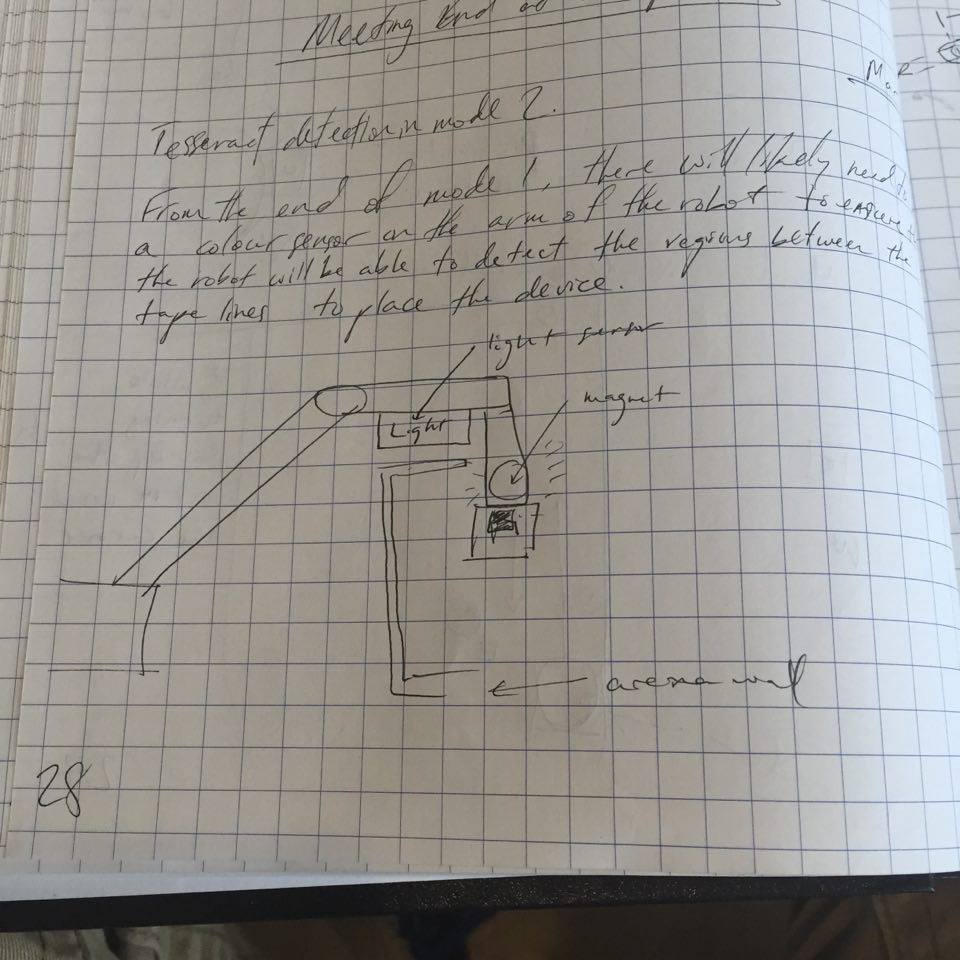 Meeting End of
Tesseract detection in mode 2.
From the end of mode 1, there will likely need
a colour sensor on the arm of the robot to ensure
the robot will be able to detect the regions between the
tape lines to place the device.
light sensor
magnet
Light
arena wall
28